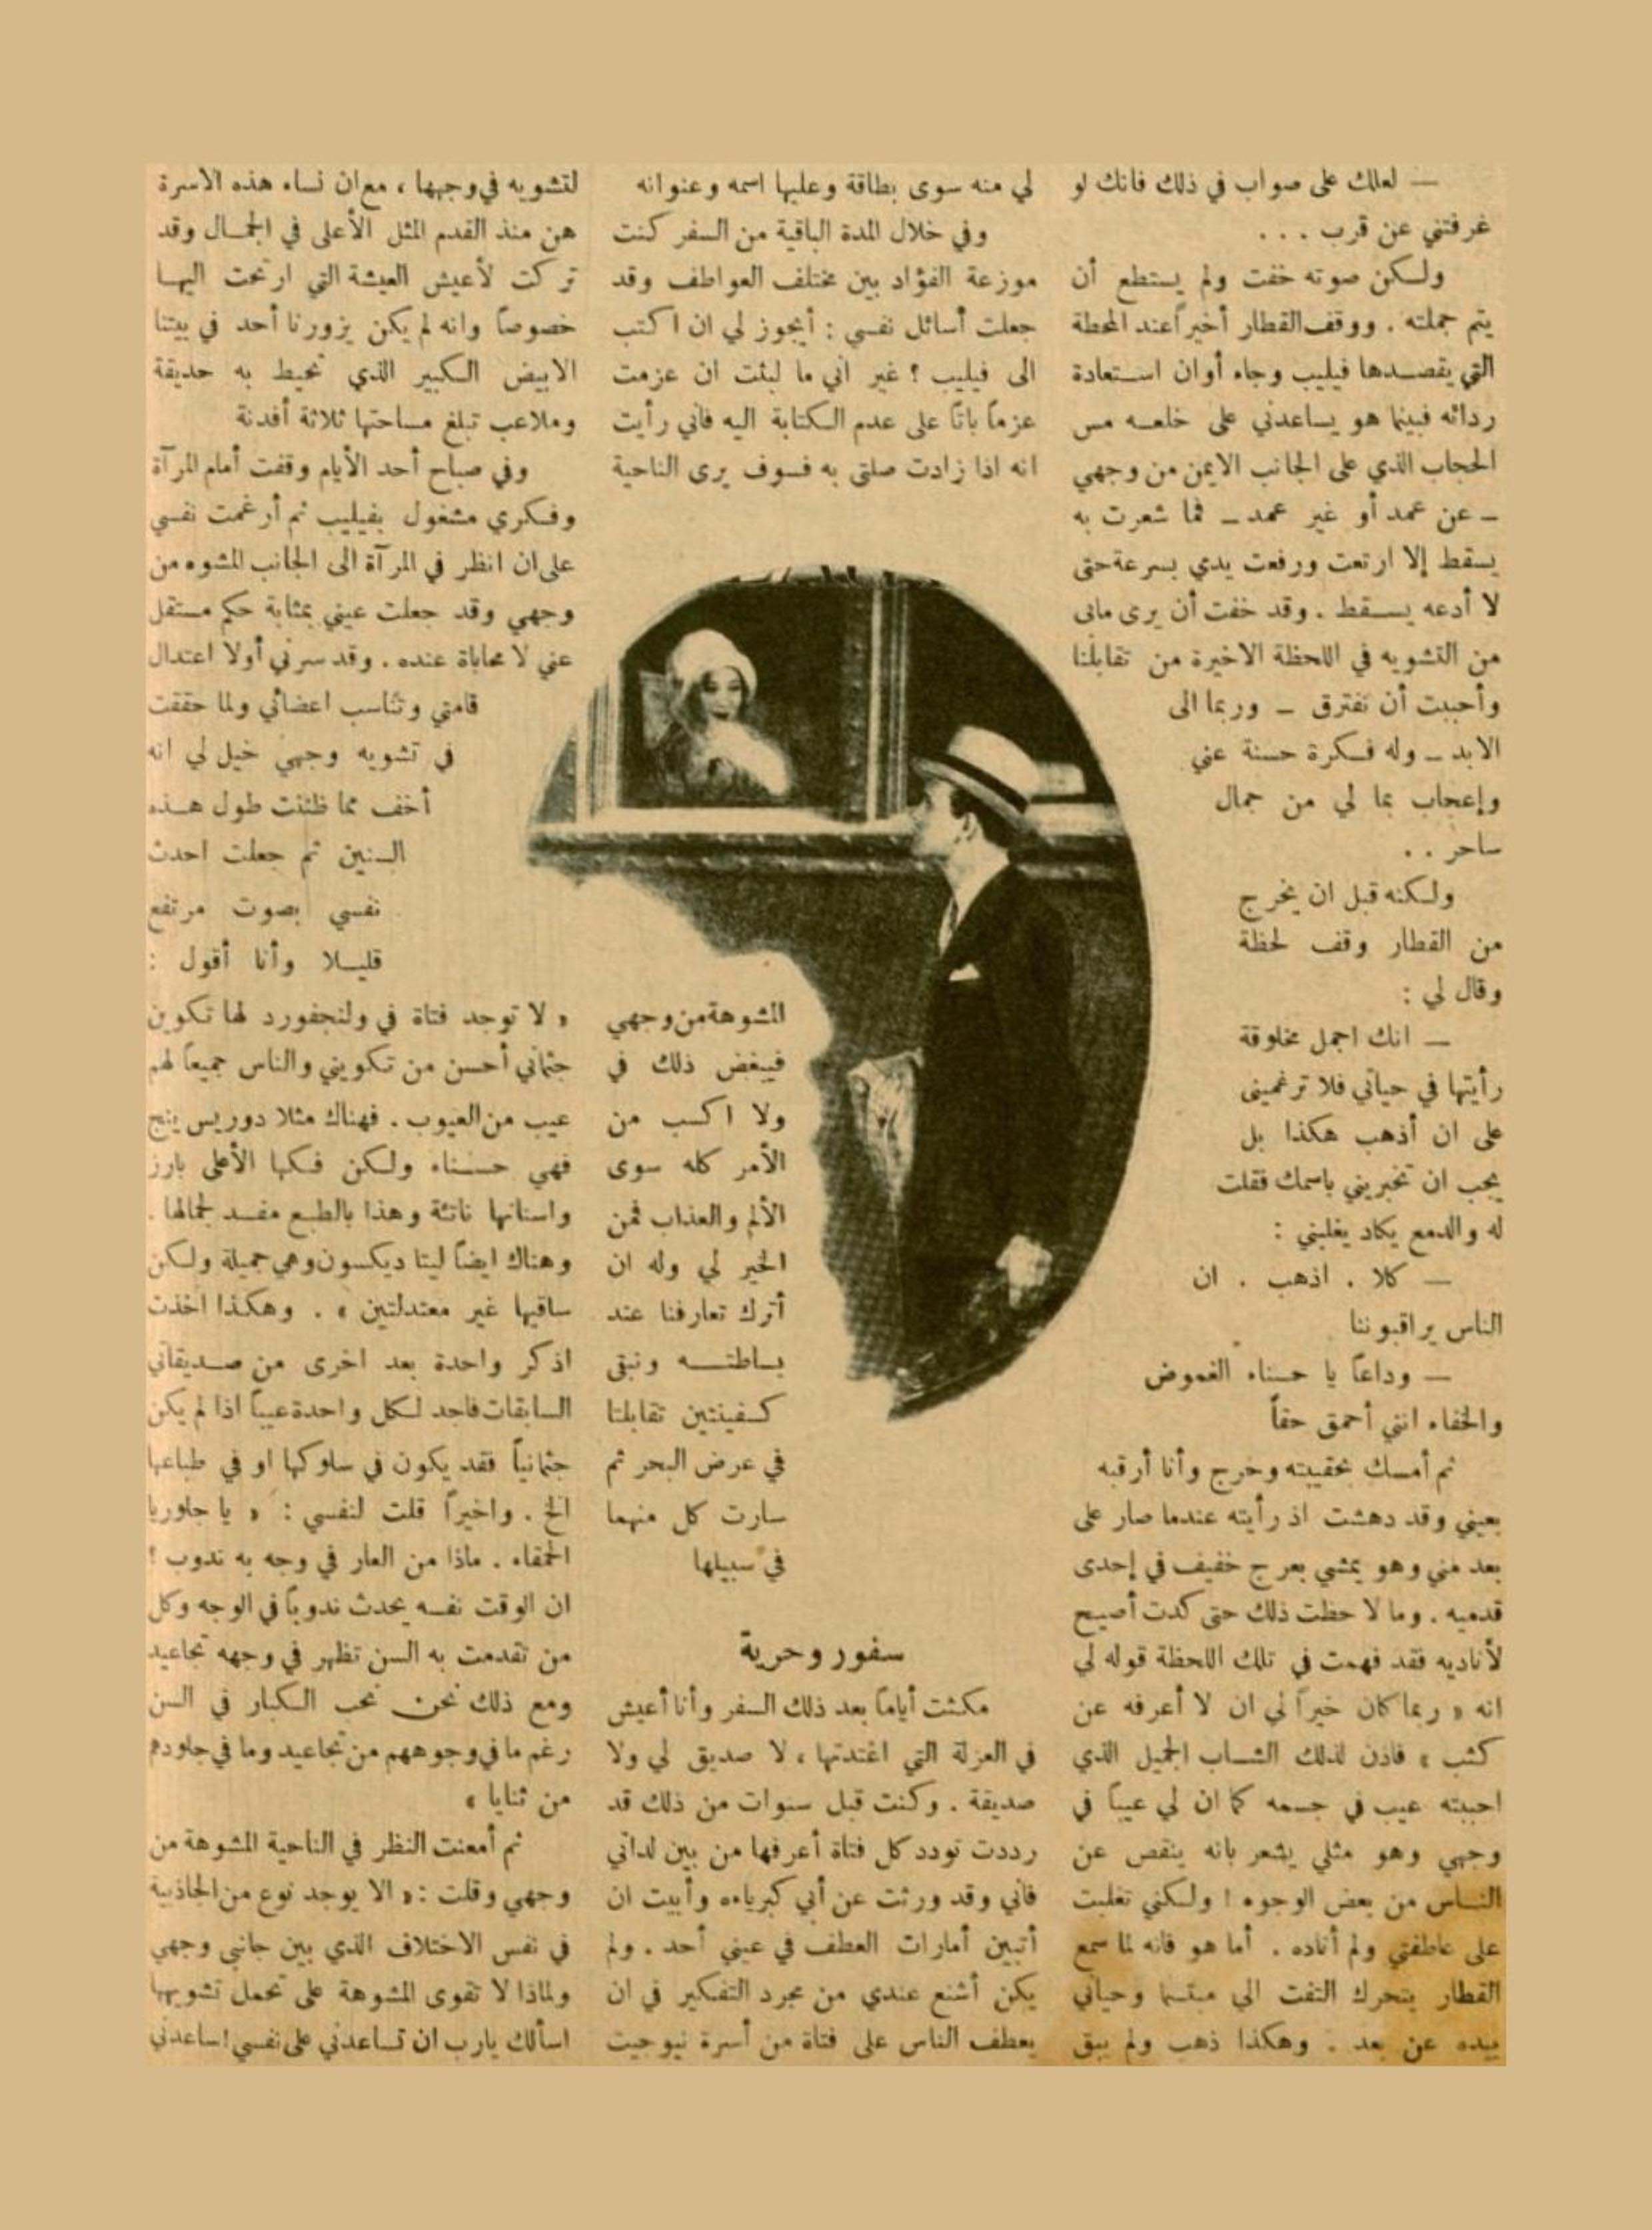 — لعلك على صواب في ذلك فانك لو
عرفتني عن قرب . . .
ولكن صوته خفت ولم يستطع أن
يتم جملته . ووقف القطار أخيراً عند المحطة
التي يقصدها فيليب وجاء أوان استعادة
ردائه فبينما هو يساعدني على خلعه مس
الحجاب الذي على الجانب الايمن من وجهي
— عن عمد أو غير عمد — فما شعرت به
يسقط إلا ارتعت ورفعت يدي بسرعة حتى
لا أدعه يسقط . وقد خفت أن يرى مابى
من التشويه في اللحظة الاخيرة من تقابلنا
وأحببت أن نفترق — وربما الى
الابد — وله فكرة حسنة عني
وإعجاب بما لي من جمال
ساحر . .
ولكنه قبل ان يخرج
من القطار وقف لحظة
وقال لي :
— انك اجمل مخلوقة
رأيتها في حياتي فلا ترغميني
على ان أذهب هكذا بل
يجب ان تخبريني باسمك فقلت
له والدمع يكاد يغلبني :
— كلا . اذهب . ان
الناس يراقبوننا
— وداعاً يا حسناء الغموض
والخفاء انني أحمق حقاً
ثم أمسك بحقيبته وخرج وأنا أرقبه
بعيني وقد دهشت اذ رأيته عندما صار على
بعد مني وهو يمشي بعرج خفيف في إحدى
قدميه . وما لاحظت ذلك حتى كدت أصيح
لأناديه فقد فهمت في تلك اللحظة قوله لي
انه « ربما كان خيراً لي ان لا أعرفه عن
كثب » فاذن لذلك الشاب الجميل الذي
احببته عيب في جسمه كما ان لي عيباً في
وجهي وهو مثلي يشعر بانه ينقص عن
الناس من بعض الوجوه ! ولكني تغلبت
على عاطفتي ولم أناده . أما هو فانه لما سمع
القطار يتحرك التفت الي مبتسما وحياني
بيده عن بعد . وهكذا ذهب ولم يبق
لي منه سوى بطاقة وعليها اسمه وعنوانه
وفي خلال المدة الباقية من السفر كنت
موزعة الفؤاد بين مختلف العواطف وقد
جعلت أسائل نفسي : أيجوز لي ان اكتب
الى فيليب ؟ غير اني ما لبثت ان عزمت
عزماً باتاً على عدم الكتابة اليه فاني رأيت
انه اذا زادت صلتي به فسوف يرى الناحية
المشوهة من وجهي
فيبغض ذلك في
ولا اكسب من
الأمر كله سوى
الألم والعذاب فمن
الخير لي وله ان
أترك تعارفنا عند
بساطتــه ونبقى
كسفينتين تقابلتا
في عرض البحر ثم
سارت كل منهما
في سبيلها
سفور وحرية
مكثت أياماً بعد ذلك السفر وأنا أعيش
في العزلة التي اعتدتها ، لا صديق لي ولا
صديقة . وكنت قبل سنوات من ذلك قد
رددت تودد كل فتاة أعرفها من بين لداتي
فاني وقد ورثت عن أبي كبرياءه وأبيت ان
أتبين أمارات العطف في عيني أحد . ولم
يكن أشنع عندي من مجرد التفكير في ان
يعطف الناس على فتاة من أسرة نيوجيت
لتشويه في وجهها ، مع ان نساء هذه الاسرة
هن منذ القدم المثل الأعلى في الجمال وقد
تركت لأعيش العيشة التي ارتحت اليها
خصوصاً وانه لم يكن يزورنا أحد في بيتنا
الابيض الكبير الذي تحيط به حديقة
وملاعب تبلغ مساحتها ثلاثة أفدنة
وفي صباح أحد الأيام وقفت أمام المرآة
وفكري مشغول بفيليب ثم أرغمت نفسي
على ان انظر في المرآة الى الجانب المشوه من
وجهي وقد جعلت عيني بمثابة حكم مستقل
عني لا محاباة عنده . وقد سرني أولا اعتدال
قامتي وتناسب اعضائي ولما حققت
في تشويه وجهي خيل لي انه
أخف مما ظننت طول هــذه
السنين ثم جعلت احدث
نفسي بصوت مرتفع
قليــلا وأنا أقول :
« لا توجد فتاة في ولنجفورد لها تكوين
جثماني أحسن من تكويني والناس جميعاً لهم
عيب من العيوب . فهناك مثلا دوريس ينج
فهي حسناء ولكن فكها الأعلى بارز
واسنانها ناتئة وهذا بالطبع مفسد لجمالها .
وهناك ايضاً ليتا ديكسون وهي جميلة ولكن
ساقيها غير معتدلتين » . وهكذا اخذت
اذكر واحدة بعد اخرى من صديقاتي
السابقات فاجد لكل واحدة عيباً اذا لم يكن
جثمانياً فقد يكون في سلوكها او في طباعها
الخ . واخيراً قلت لنفسي : « يا جلوريا
الحمقاء . ماذا من العار في وجه به ندوب ؟
ان الوقت نفسه يحدث ندوباً في الوجه وكل
من تقدمت به السن تظهر في وجهه تجاعيد
ومع ذلك نحن نحب الكبار في السن
رغم ما في وجوههم من تجاعيد وما في جلودهم
من ثنايا »
ثم أمعنت النظر في الناحية المشوهة من
وجهي وقلت : « الا يوجد نوع من الجاذبية
في نفس الاختلاف الذي بين جانبي وجهي
ولماذا لا تقوى المشوهة على تحمل تشويهها
اسألك يارب ان تساعدني على نفسي اساعدني